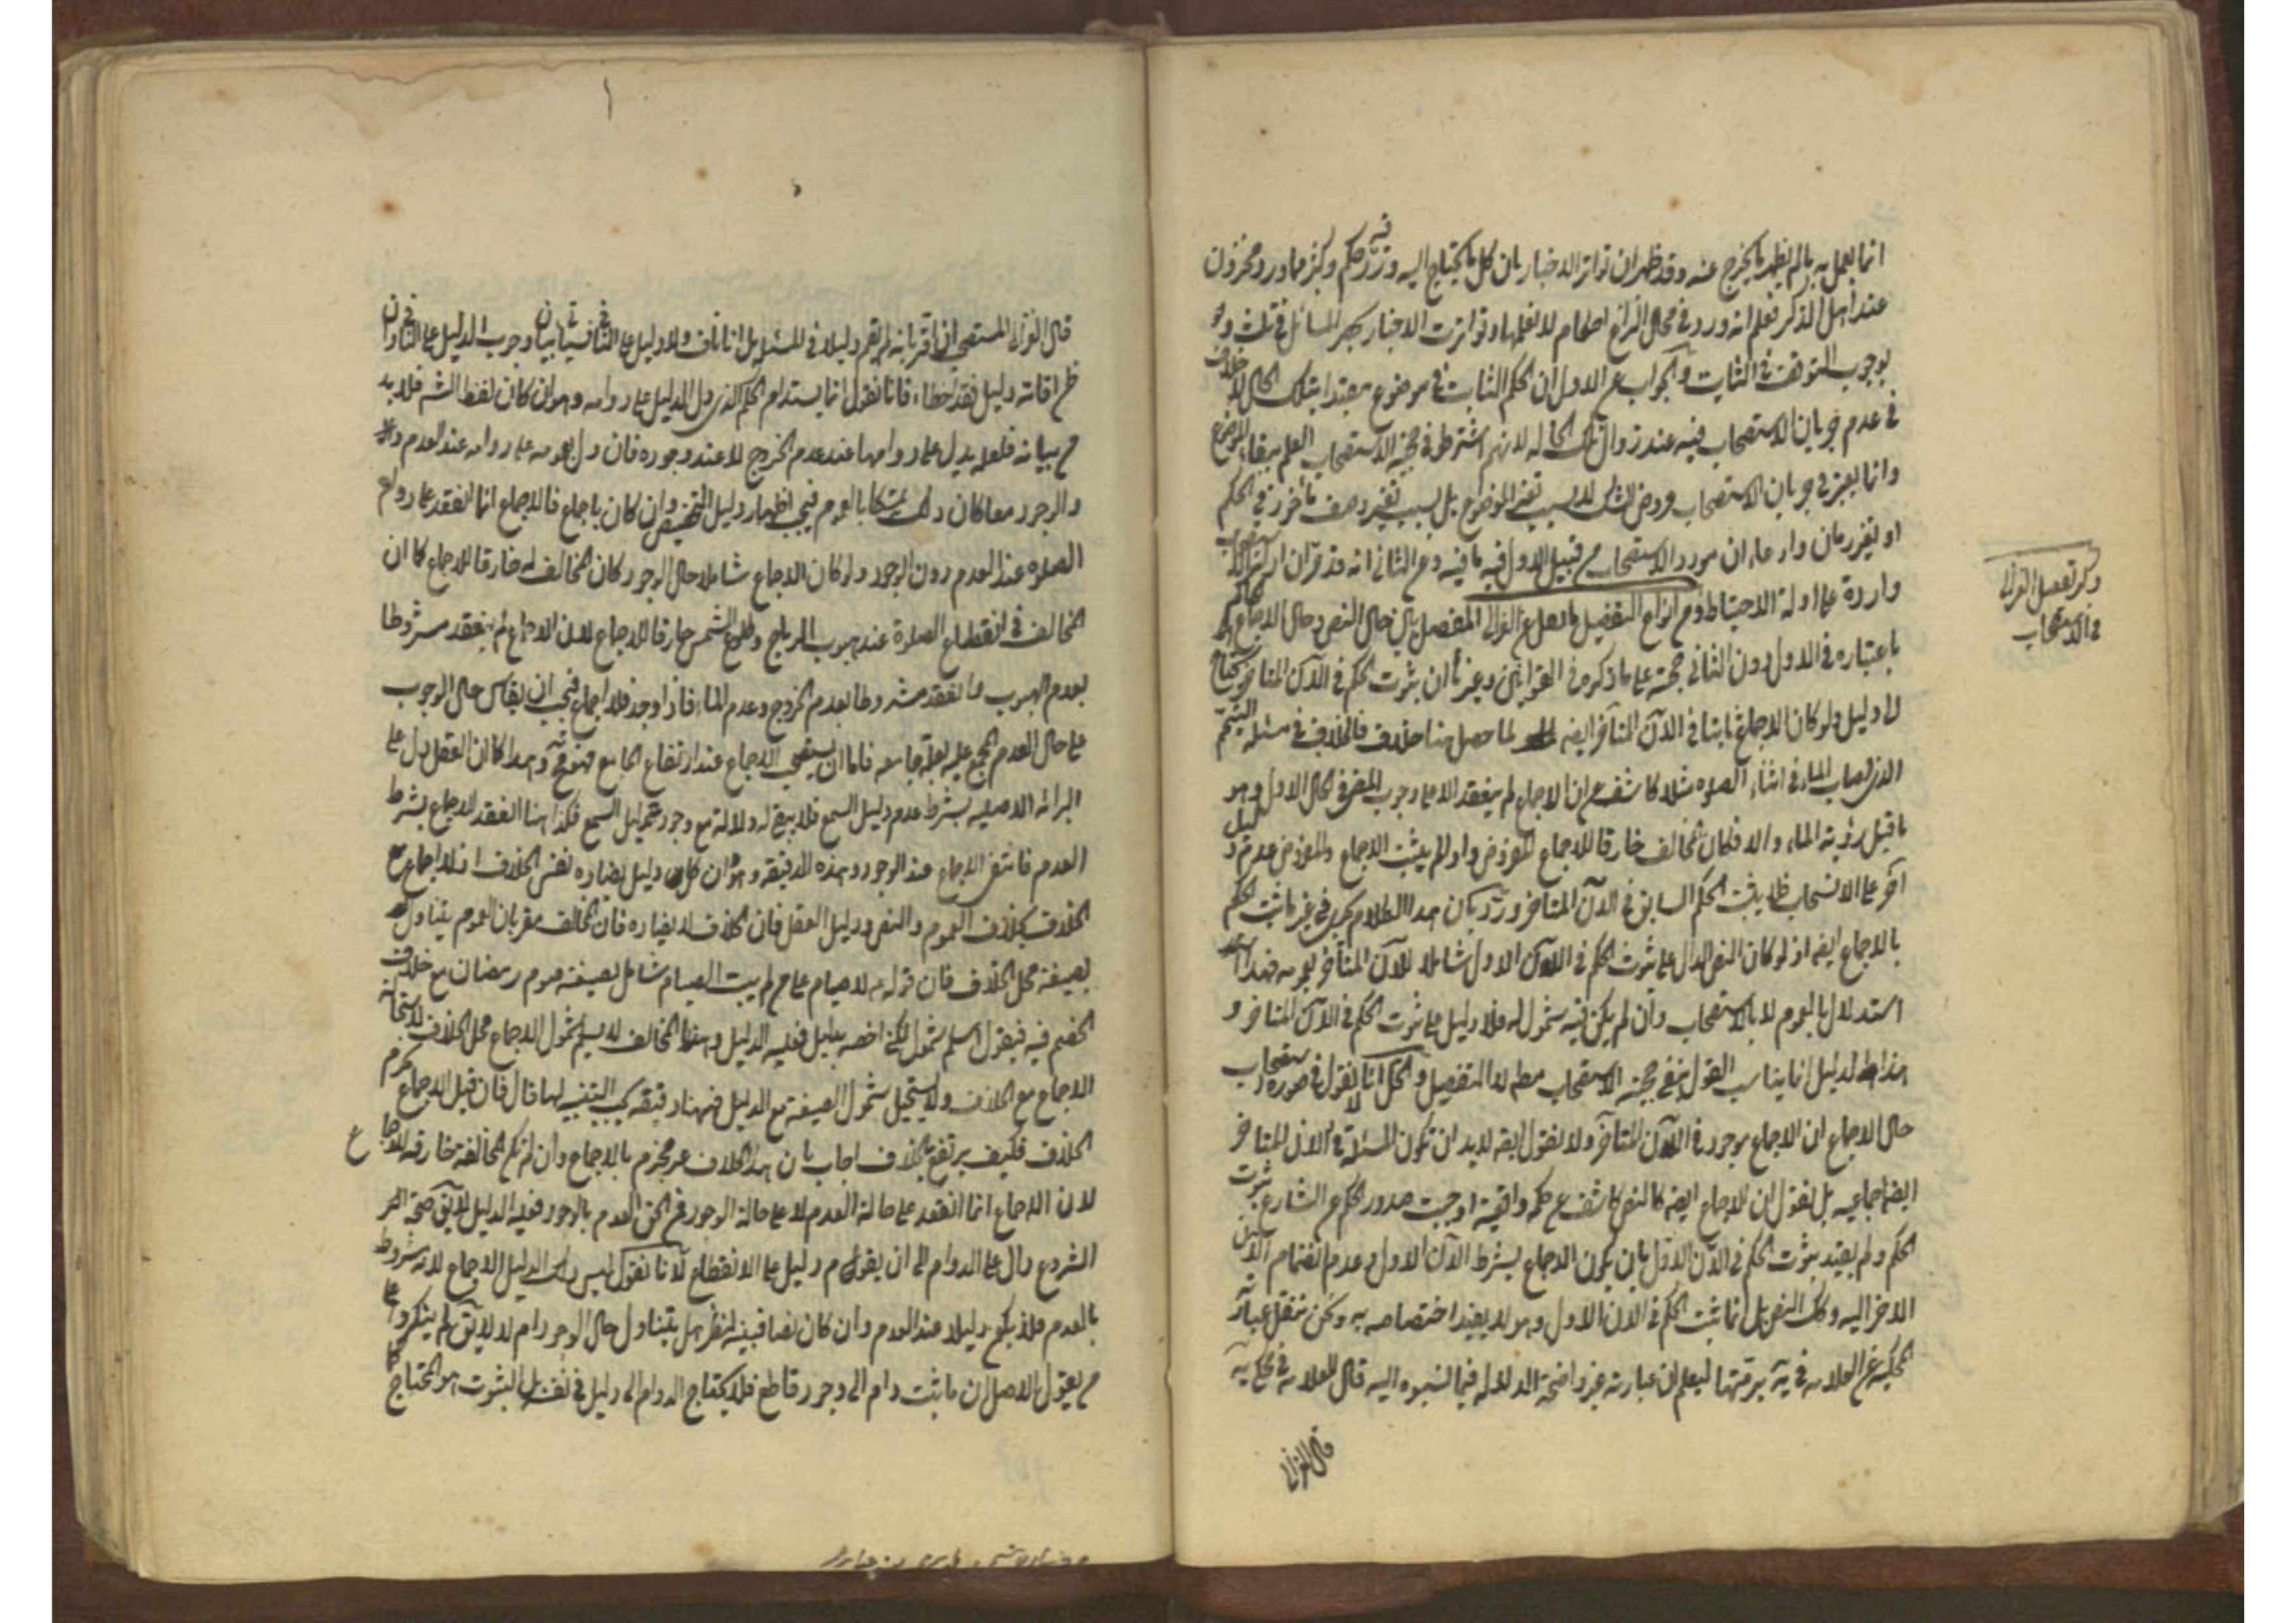 انما يعمل به ما لم يظهر ما يخرج عنه وقد ظهر ان تواتر الاخبار بان كل ما يحتاج اليه ورد فيه حكم وكنز ما ورد ومخزون
عند اهل الذكر فعلم انه ورد في محل النزاع احكام لا نعلمها وتواترت الاخبار بحصر المسائل في ثلث و
بوجوب التوقف في الثالث والجواب عن الاول ان الحكم الثابت في موضوع مقيدا بتلك الحال لا خلاف
في عدم جريان الاستصحاب فيه عند زوال تلك الحاله لانهم اشترطوا في حجية الاستصحاب العلم ببقاء الموضوع
وانما يعتبر في جريان الاستصحاب عروض الشك لا بسبب تغير الموضوع بل بسبب تغير وصف مأخوذ في الحكم
او تغير زمان وادعاء ان مورد الاستصحاب من قبيل الاول فيه ما فيه وعن الثاني انه قد مر ان
واردة على ادلة الاحتياط ومن انواع التفصيل ما نقل عن الغزالي المفصل بين حال النص وحال الاجماع
باعتباره في الاول دون الثاني حجته على ما ذكره في القوانين وغيرها ان ثبوت الحكم في الآن المتأخر يحتاج
الى دليل ولو كان الاجماع ثابتا في الآن المتأخر ايضا لما حصل هنا خلاف فالخلاف في مسئلة المتيمم
الذي اصاب الماء في اثناء الصلوه مثلا كاشف عن ان الاجماع لم ينعقد الا على وجوب المضي في الحال الاول وهو
ما قبل رؤية الماء والا فكان المخالف خارقا للاجماع المفروض واذ لم يثبت الاجماع والمفروض عدم دليل
آخر على الانسحاب فلا يثبت الحكم السابق في الآن المتأخر ورد بان هذا الكلام يجري في غير ما ثبت الحكم
بالاجماع ايضا اذ لو كان النص الدال على ثبوت الحكم في الآن الاول شاملا للآن المتأخر بعمومه فهذا
استدلال بالعموم لا بالاستصحاب وان لم يكن فيه شمول له فلا دليل على ثبوت الحكم في الآن المتأخر و
هذا الدليل انما يناسب القول بنفي حجية الاستصحاب مطلقا لا التفصيل والحل انا لا نقول في صورة استصحاب
حال الاجماع ان الاجماع موجود في الآن المتأخر ولا نقول ايضا لا بد ان تكون المسئلة في الآن المتأخر
ايضا اجماعيه بل نقول ان الاجماع ايضا كالنص كاشف عن حكمة واقعية اوجبت صدور الحكم عن الشارع ثبوت
الحكم ولم يقيد بثبوت الحكم في الآن الاول بان يكون الاجماع بشرط الآن الاول وعدم انضمام الآن
الاخر اليه وكذلك النص بل انما ثبت الحكم في الآن الاول وهو لا يفيد اختصاصه به ونحن ننقل عبارته
المحكية عن العلامه في يه برمتها ليعلم ان عبارته غير واضحة الدلالة فيما نسبوه اليه قال العلامه في محكي يه
قال الغزالي
ذكر تفصيل الغزالي
في الاستصحاب
قال الغزالي المستصحب ان اقر بانه لم يقم دليلا في المسئله بل انا ناف ولا دليل على النافي
ظن اقامة دليل فقد اخطاء فانا نقول انما يستدام الحكم الذي دل الدليل على دوامه وهو ان كان لفظ الشرع فلا بد
من بيانه فلعله يدل على دوامها عند عدم الخروج لا عند وجوده فان دل بعمومه على دوامه عند العدم
والوجود معا كان ذلك تمسكا بالعموم فيجب اظهار دليل التخصيص وان كان باجماع فالاجماع انما انعقد على دوام
الصلوه عند العدم دون الوجود ولو كان الاجماع شاملا حال الوجود كان المخالف له خارقا للاجماع كما ان
المخالف في انقطاع الصلوة عند هبوب الرياح وطلوع الشمس خارق للاجماع لان الاجماع لم ينعقد مشروطا
بعدم الهبوب وانعقد مشروطا بعدم الخروج وعدم الماء فاذا وجد فلا اجماع فيجب ان يقاس حال الوجوب
على حال العدم المجمع عليه لعلة جامعه فاما ان يستصحب الاجماع عند ارتفاع الجامع فهو وهذا كما ان العقل دل على
البرائه الاصليه بشرط عدم دليل السمع فلا يبقى له دلالة مع وجود دليل السمع فكذا هنا انعقد الاجماع بشرط
العدم فانتفى الاجماع عند الوجود وهذه الدقيقه وهو ان كل دليل يضاده نفس الخلاف اذ لا اجماع مع
الخلاف بخلاف العموم والنص ودليل العقل فان الخلاف لا يضاده فان المخالف مقر بان العموم يتناول
بصيغته محل الخلاف فان قوله لا صيام على من لم يبت الصيام شامل بصيغته صوم رمضان مع خلاف
الخصم فيه فيقول اسلم شمول لكن اخصه بدليل فعليه الدليل وهنا المخالف لا يسلم شمول الاجماع محل الخلاف لاستحالة
الاجماع مع الخلاف ولا يستحيل شمول الصيغة مع الدليل فهنا دقيقة يجب التنبه لها قال فان قيل الاجماع محرم
الخلاف فكيف يرتفع بالخلاف اجاب بان هذا الخلاف غير محرم بالاجماع وان لم تكن المخالفة خارقة للاجماع
لان الاجماع انما انعقد على حالة العدم لا على حالة الوجود فمن الحق العدم بالوجود فعليه الدليل لا يق صحة
الشروع دال على الدوام الى ان يقوم دليل على الانقطاع لانا نقول ليس ذلك الدليل الاجماع لانه مشروط
بالعدم فلا يكون دليلا عند العدم وان كان نصا فبينه لننظر هل يتناول حال الوجود ام لا لا يق لم ينكروا على
من يقول الاصل ان ما ثبت دام الى وجود قاطع فلا يحتاج الدوام الى دليل في نفسه بل الثبوت هو المحتاج